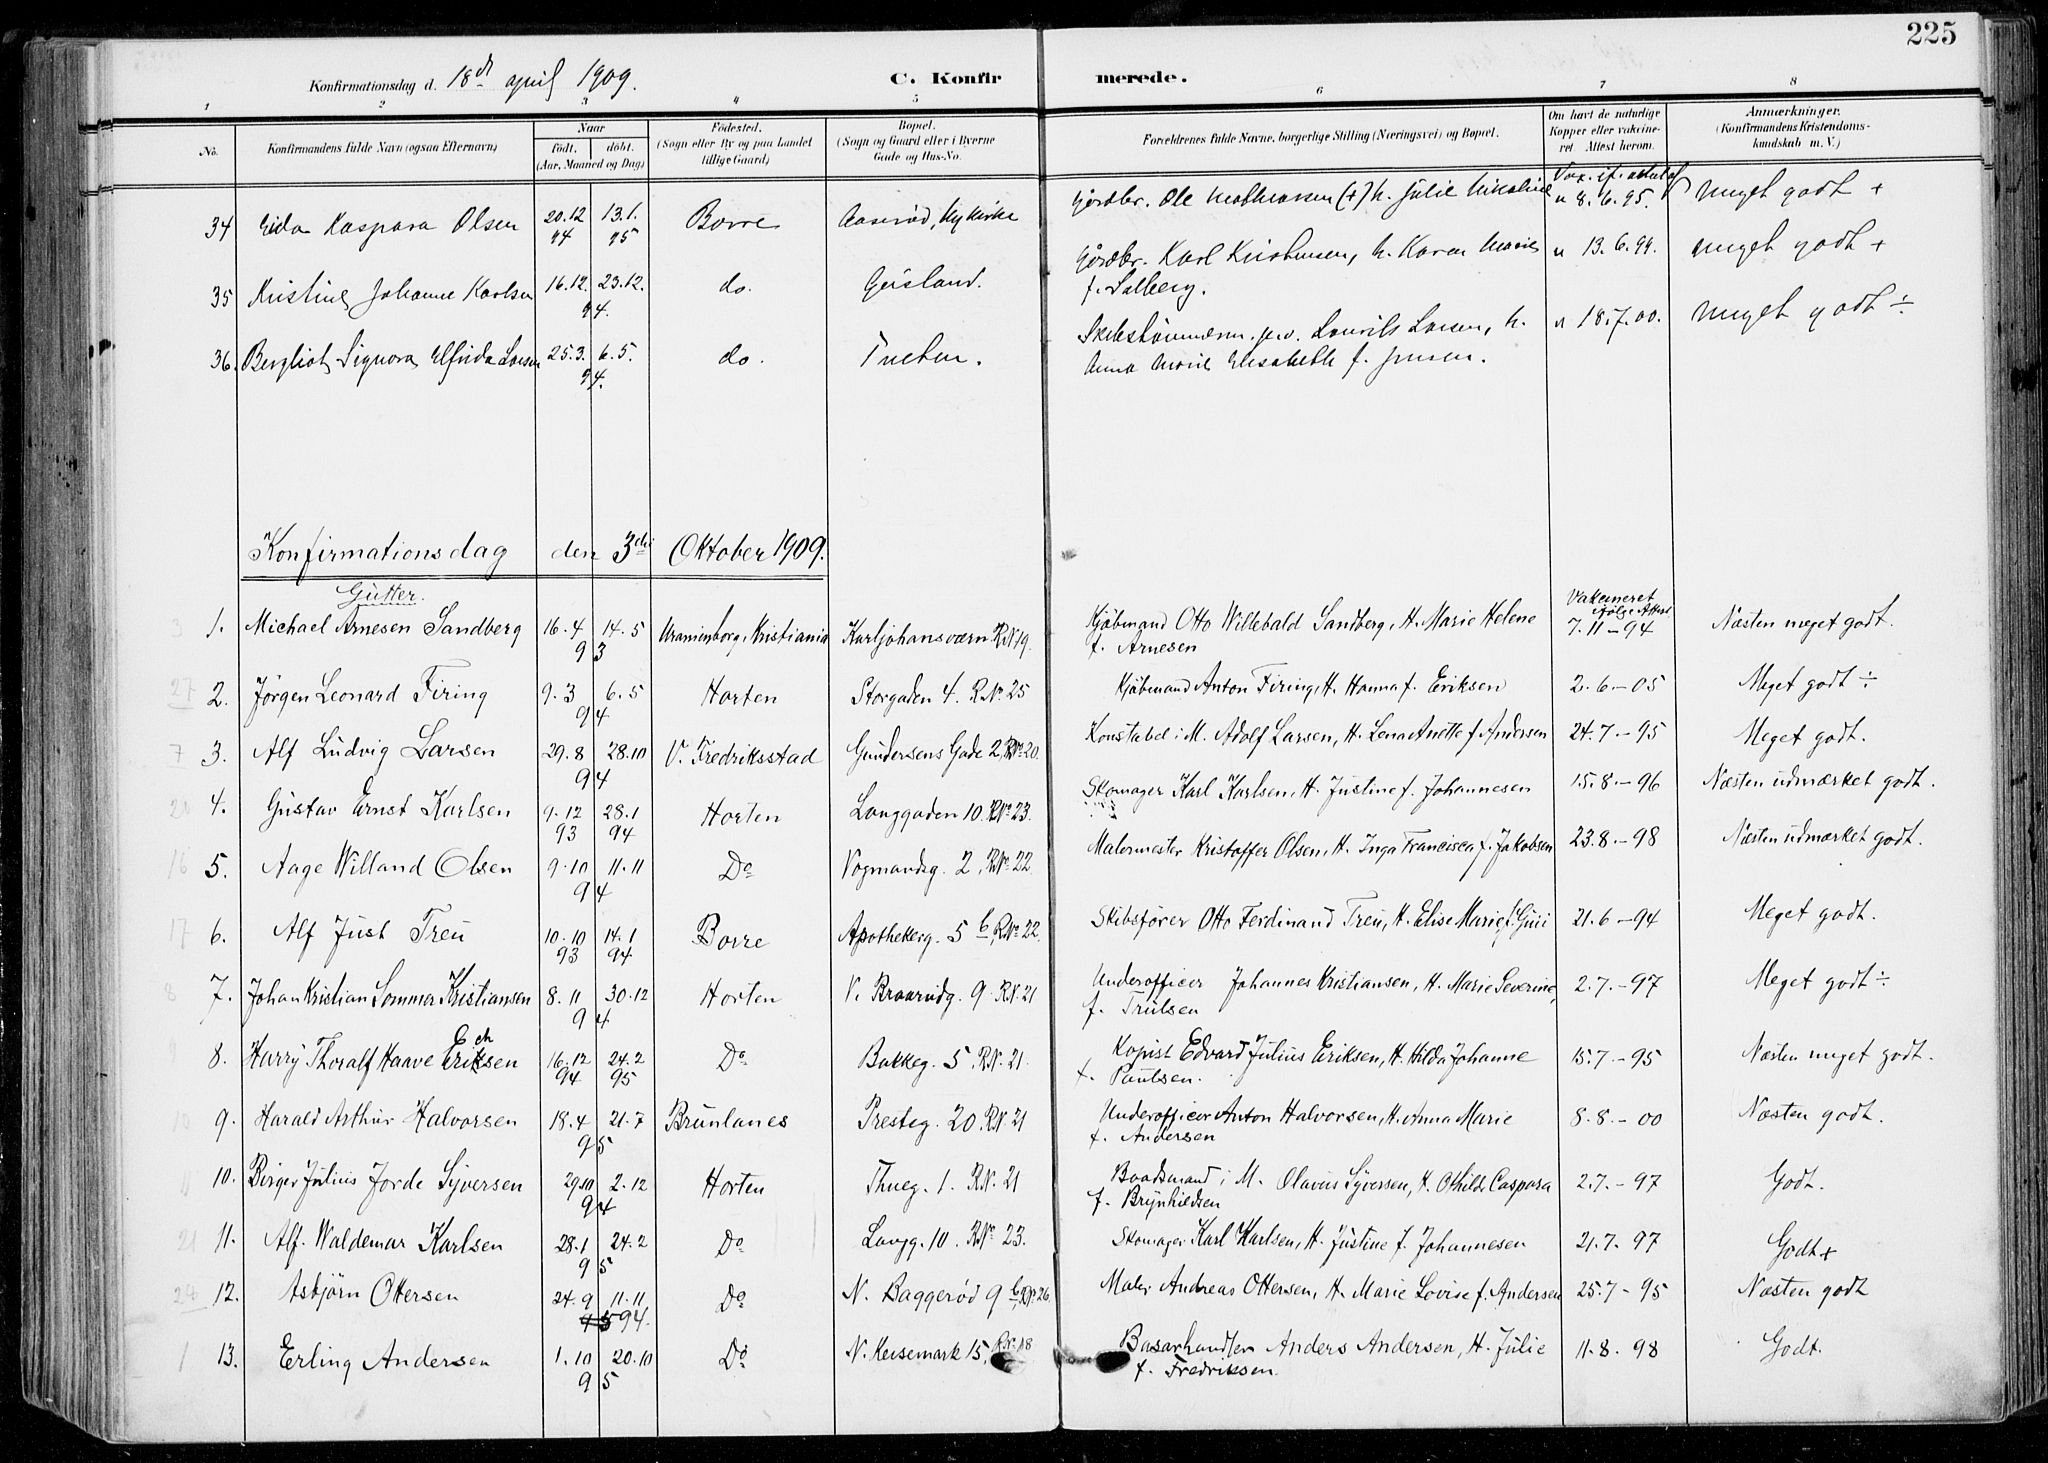 225
Konfirmationsdag d. 18de april 1909.
C. Konfirmerede.
1 2 3 4 5 6 7 8
No. Konfirmandens fulde Navn (ogsaa Efternavn) Naar født. døbt. (Aar, Maaned og Dag) Fødested. (Sogn eller By og paa Landet tillige Gaard) Bopæl. (Sogn og Gaard eller i Byerne Gade og Hus-No. Forældrenes fulde Navne, borgerlige Stilling (Næringsvei) og Bopæl. Om havt de naturlige Kopper eller vakcineret. Attest herom. Anmærkninger. (Konfirmandens Kristendomskundskab m. V.)
34 Kaspara Olsen 20.12 94 13.1. 95 Borre Nykirke Gårdbr. Ole Mathiassen (+) h. Julie Nikoline Vax. if. attest af " 8.6.95. meget godt +
35 Kristine Johanne Karlsen 16.12. 23.12. 94. do. Geisland. Gårdbr. Karl Kristensen, h. Karen Marie f. Salberg. " 13.6.99. meget godt +
36. Bergliot Signora Elfrida Larsen 25.3. 6.5. 94. do. Laurits Larsen, h. Anna Marie Elisabeth f. Jensen. " 18.7.00. meget godt ÷
Konfirmationsdag den 3die Oktober 1909.
Gutter.
1. Michael Arnesen Sandberg 16.4 14.5 93 Uranienborg, Kristiania Karljohansværn R.N.19. Kjøbmand Otto Willebald Sandberg, H. Marie Helene f. Arnesen Vakcineret ifølge Attest 7.11-94 Næsten meget godt.
2. Jørgen Leonard Firing 9.3 6.5 94 Horten Storgaden 4. R.No. 25 Kjøbmand Anton Firing, H. Hanna f. Eriksen 2.6.-05 Meget godt ÷
3. Alf Ludvig Larsen 29.8 28.10 94 V. Fredriksstad Gundersens Gade 2, R.No. 20. Konstabel i M. Adolf Larsen, H. Lena Anette f. Andersen 24.7.-95 Meget godt.
4. Gustav Ernst Karlsen 9.12 93 28.1 94 Horten Langgaden 10. R.No. 23. Skomager Karl Karlsen, H. Justine f. Johannesen 15.8.-96 Næsten udmærket godt.
5. Aage Willand Olsen 9.10 11.11 94 Do Vogmandsg. 2, R.No. 22. Malermester Kristoffer Olsen, H. Inga Francisca f. Jakobsen 23.8.-98 Næsten udmærket godt.
6. Alf Just Treu 10.10 93 14.1 94 Borre Apothekerg. 5 b, R.No. 22. Skibsfører Otto Ferdinand Treu, H. Elise Marie f. 21.6-94 Meget godt.
7. Johan Kristian Sommer Kristiansen 8.11 30.12 94 Horten V. Braarudg. 9 R.N. 21 Underofficer Johannes Kristiansen, H. Marie Severine, f. Trulsen 2.7.-97 Meget godt ÷
8. Harry Thoralf Haave Eriksen 16.12 94 24.2 95 Do Bakkeg. 5, R.N. 21. Kopist Edvard Julius Eriksen, H. Hilda Johanne f. Paulsen. 15.7.-95 Næsten meget godt.
9. Harald Arthur Halvorsen 18.4 21.7 95 Brunlanes Presteg. 20. R.N. 21 Underofficer Anton Halvorsen, H. Anna Marie f. Andersen 8.8.-00 Næsten godt.
10. Birger Julius Jorde Syversen 29.10 2.12 94 Horten Thueg. 1. R.N. 21 Baadsmand i M. Olavus Syversen, H. Othilde Caspara f. Brynhildsen 2.7.-97 Godt.
11. Alf. Waldemar Karlsen 28.1 24.2 95 Do Langg. 10. R.No. 23. Skomager Karl Karlsen, H. Justine f. Johannesen 21.7.97 Godt+
12. Asbjørn Ottersen 24.9 11.11 94. Do N. Baggerød 9 b, R.N. 26. Maler Andreas Ottersen, H. Marie Lovise f. Andersen 25.7-95 Næsten godt
13. Erling Andersen 1.10 20.10 95 Do N. Keisemark 15, R.N. 18 Basarhandler Anders Andersen, H. Julie f. Fredriksen. 11.8.98 Godt.